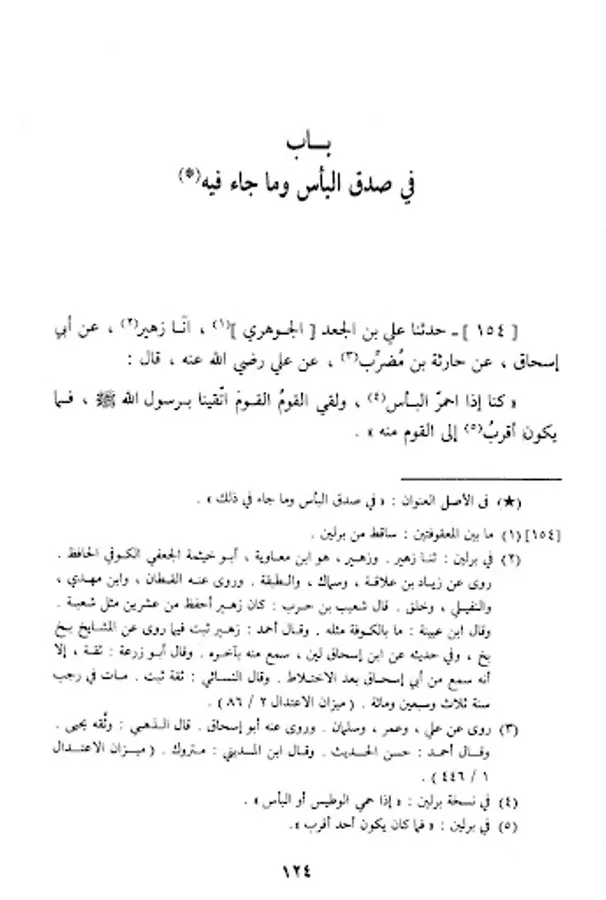 بـاب
في صدق البأس وما جاء فيه(*)
[ ١٥٤ ] ـ حدثنا علي بن الجعد [ الجـوهري ](١) ، انّا زهير(٢) ، عن أبي
إسحاق ، عن حارثة بن مُضرِّب(٣) ، عن علي رضي الله عنه ، قال :
« كنا إذا احمرّ البـأس(٤) ، ولقي القومُ القـومَ اتّقينا بـرسول الله ﷺ ، فـما
يكون أقربُ(٥) إلى القوم منه » .
(★) في الأصل العنوان : « في صدق البأس وما جاء في ذلك » .
[١٥٤] (١) ما بين المعقوفتين : ساقط من برلين .
(٢) في برلين : ثنـا زهير . وزهـير ، هو ابن معـاوية ، أبـو خيثمة الجعفي الكـوفي الحافظ .
روى عن زيـاد بن علاقـة ، وسماك ، والـطبقة . وروى عنـه القـطان ، وابن مهـدي ،
والنفيـلي ، وخلق . قال شعيب بن حـرب : كان زهـير أحفظ من عشرين مثل شعبـة .
وقال ابن عيينة : ما بـالكوفة مثله . وقـال أحمد : زهـير ثبت فيما روى عن المشـايخ بـخ
بخ ، وفي حديثه عن ابن إسحاق لين ، سمع منه بآخـره . وقال أبـو زرعة : ثقـة ، إلا
أنه سمع من أبي إسحـاق بعد الاخـتلاط . وقال النسـائي : ثقة ثبت . مـات في رجب
سنة ثلاث وسبعين ومائة . ( ميزان الاعتدال ٢ / ٨٦ ) .
(٣) روى عن علي ، وعمر ، وسلمان . وروى عنه أبو إسحاق . قال الـذهبي : وثّقه يحيى .
وقـال أحمد : حسن الحـديث . وقـال ابن المـديني : متروك . ( ميـزان الاعتـدال
١ / ٤٤٦ ) .
(٤) في نسخة برلين : « إذا حمي الوطيس أو البأس » .
(٥) في برلين : « فما كان يكون أحد أقرب ».
١٢٤